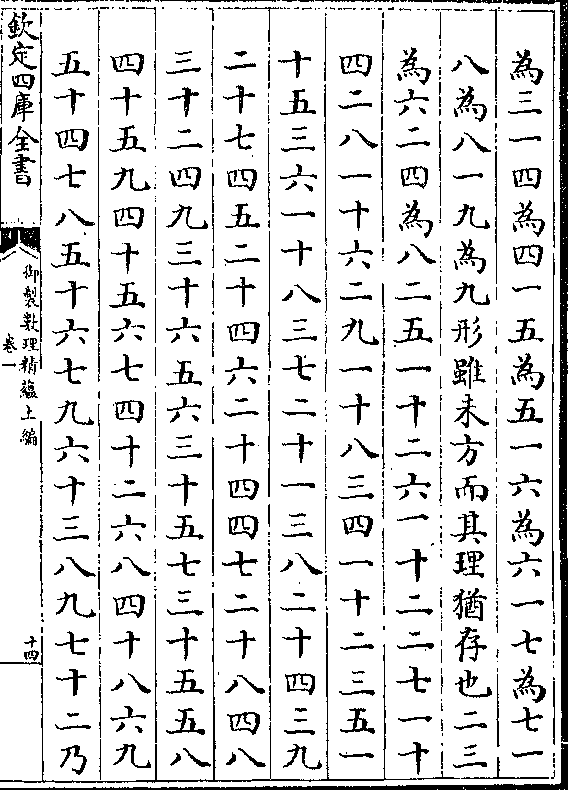 為三一四為四一五為五一六為六一七為七一
八為八一九為九形雖未方而其理猶存也二三
為六二四為八二五一十二六一十二二七一十
四二八一十六二九一十八三四一十二三五一
十五三六一十八三七二十一三八二十四三九
二十七四五二十四六二十四四七二十八四八
三十二四九三十六五六三十五七三十五五八
四十五九四十五六七四十二六八四十八六九
五十四七八五十六七九六十三八九七十二乃
欽定四庫全書
御製數理精蘊上編
卷一
十四